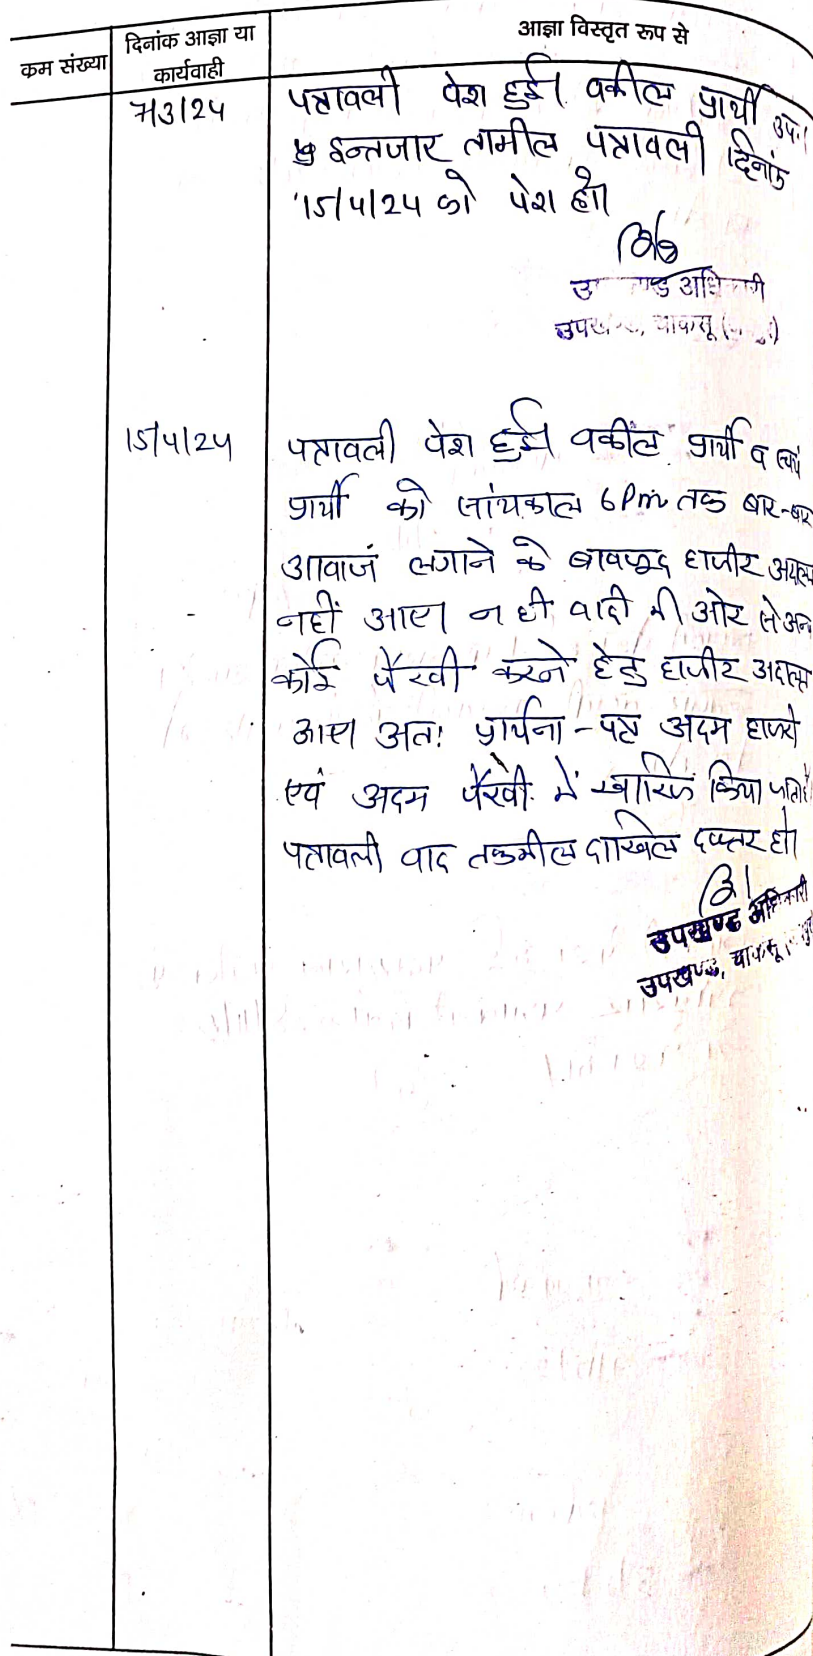 कम संख्या
दिनांक आज्ञा या
कार्यवाही
आज्ञा विस्तृत रूप से
7/3/24
पत्रावली पेश हुई। वकील प्रार्थी उप.।
इन्तजार तामील पत्रावली दिनांक
15/4/24 को पेश हो।
अधिकारी
चाकसू
15/4/24
पत्रावली पेश हुई वकील प्रार्थी व स्वयं
प्रार्थी को सांयकाल 6 Pm तक बार-बार
आवाजं लगाने के बावजूद हाजीर
नहीं आए। न ही वादी की ओर से अन्य
कोई पैरवी करने हेतु हाजीर अदालत
आए। अतः प्रार्थना-पत्र अदम हाजरी
एवं अदम पैरवी में खारिज किया जाता है
पत्रावली वाद तकमील दाखिल दफ्तर हो।
उपखण्ड अधिकारी
उपखण्ड, चाकसू